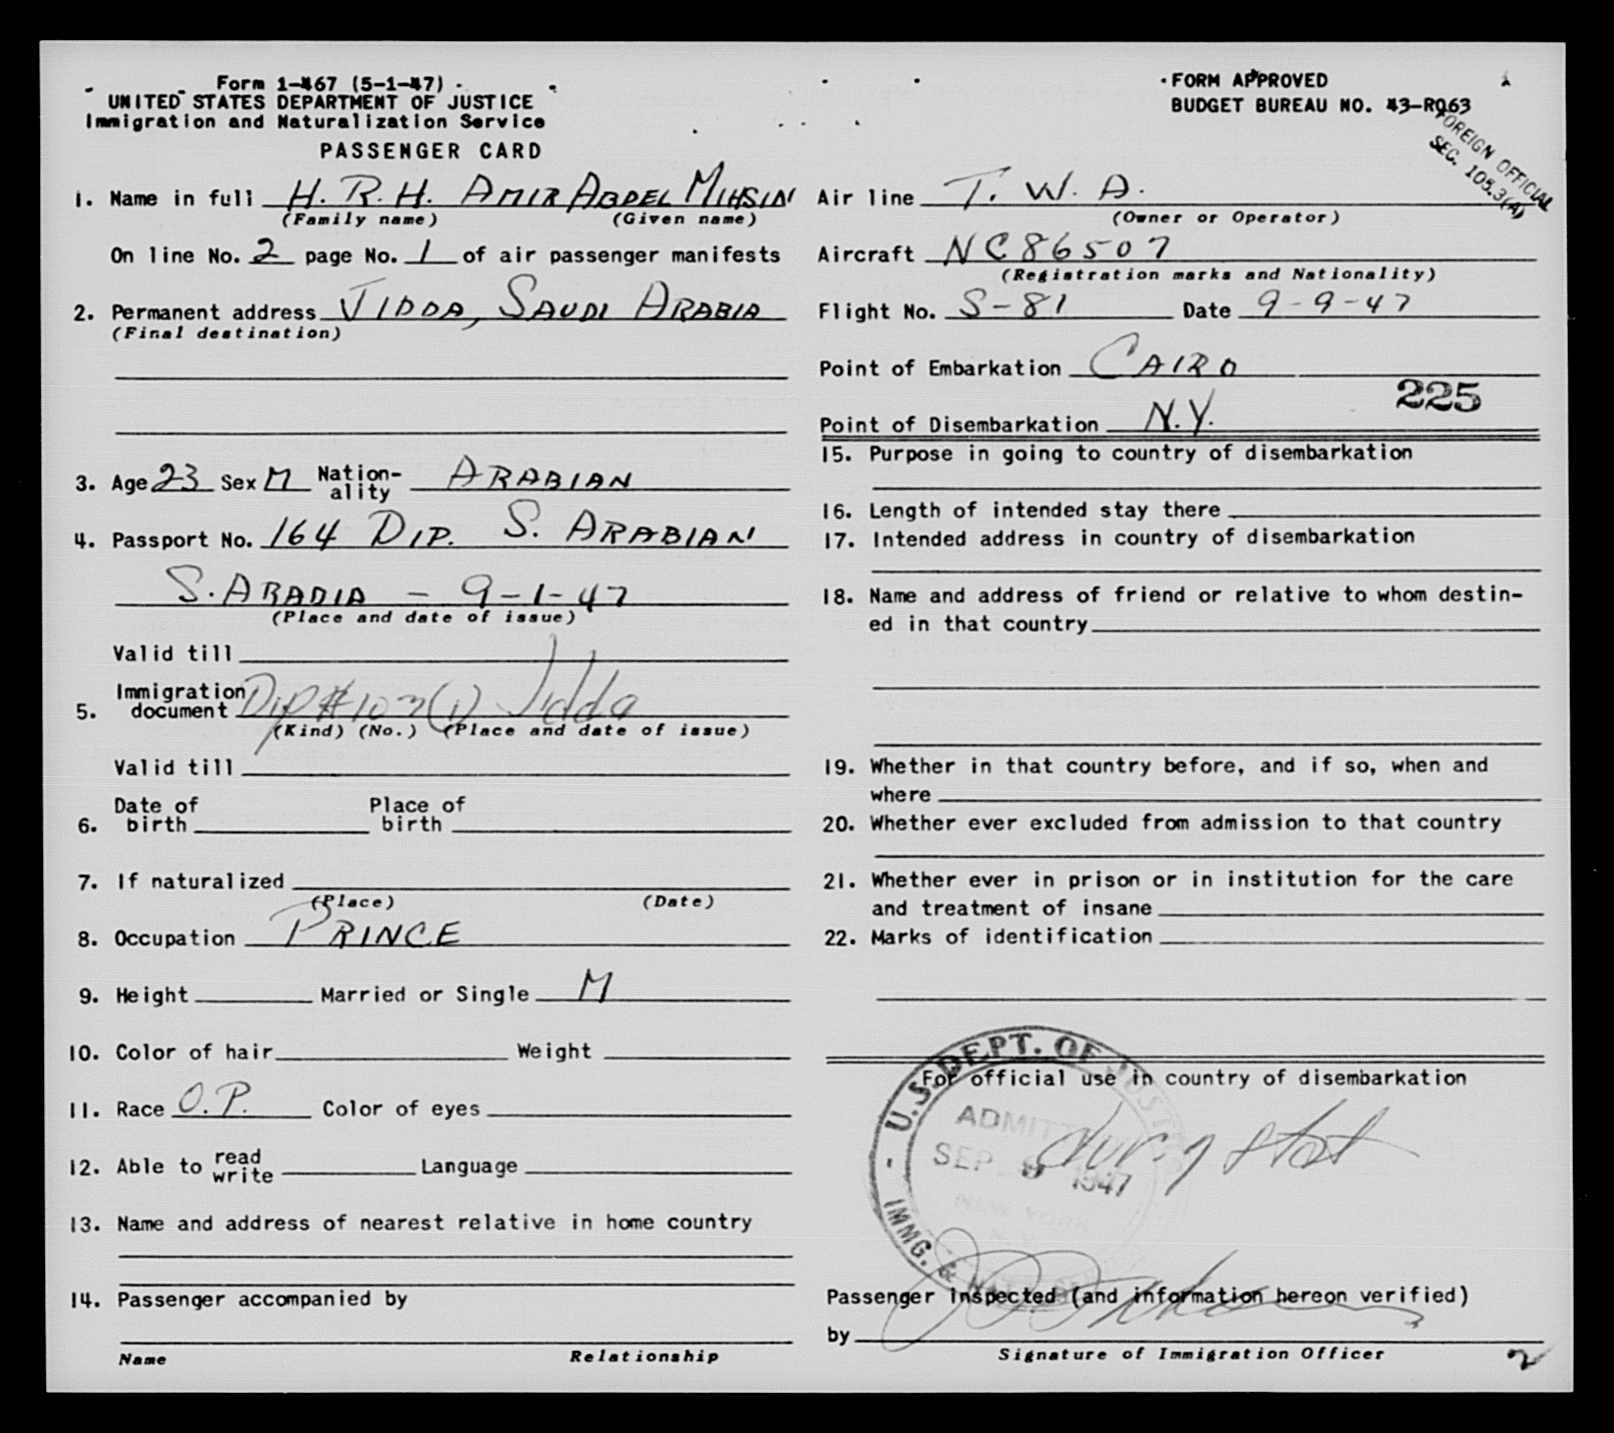 Form 1-467 (5-1-47)
UNITED STATES DEPARTMENT OF JUSTICE
Immigration and Naturalization Service
PASSENGER CARD
FORM APPROVED
BUDGET BUREAU NO. 43-R063
FOREIGN OFFICIAL
SEC. 105.3(A)
1. Name in full H. R. H. AMIR ABDEL MIHSIN
(Family name) (Given name)
On line No. 2 page No. 1 of air passenger manifests
2. Permanent address JIDDA, SAUDI ARABIA
(Final destination)
3. Age 23 Sex M Nation-
ality ARABIAN
4. Passport No. 164 DIP. S. ARABIAN
S. ARABIA - 9-1-47
(Place and date of issue)
Valid till
5. Immigration
document Dip # 103(1) Jidda
(Kind) (No.) (Place and date of issue)
Valid till
6. Date of
birth Place of
birth
7. If naturalized
(Place) (Date)
8. Occupation PRINCE
9. Height Married or Single M
10. Color of hair Weight
11. Race O.P. Color of eyes
12. Able to read
write Language
13. Name and address of nearest relative in home country
14. Passenger accompanied by
Name Relationship
Air line T. W. A.
(Owner or Operator)
Aircraft NC86507
(Registration marks and Nationality)
Flight No. S-81 Date 9-9-47
Point of Embarkation CAIRO
225
Point of Disembarkation N.Y.
15. Purpose in going to country of disembarkation
16. Length of intended stay there
17. Intended address in country of disembarkation
18. Name and address of friend or relative to whom destin-
ed in that country
19. Whether in that country before, and if so, when and
where
20. Whether ever excluded from admission to that country
21. Whether ever in prison or in institution for the care
and treatment of insane
22. Marks of identification
For official use in country of disembarkation
U.S. DEPT. OF JUSTICE
ADMITTED
SEP 9 1947
NEW YORK
IMMG. & NATZ.
Passenger inspected (and information hereon verified)
by
Signature of Immigration Officer
2